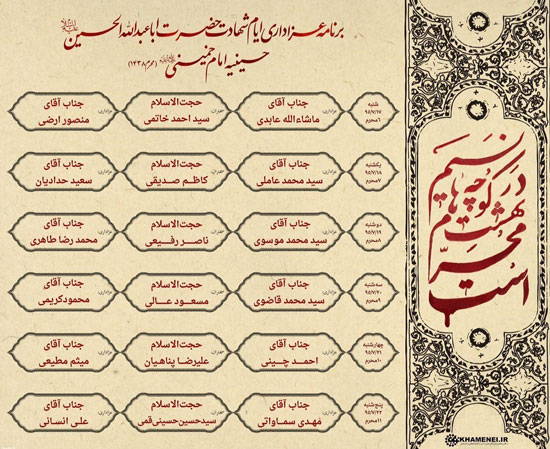 برنامه عزاداری ایام شهادت حضرت اباعبدالله الحسین
حسینیه امام خمینی (محرم ۱۴۳۸)
شنبه
۹۵/۷/۱۷
۶ محرم
جناب آقای
ماشاءالله عابدی
سخنران:
حجت‌الاسلام
سید احمد خاتمی
عزاداری:
جناب آقای
منصور ارضی
یکشنبه
۹۵/۷/۱۸
۷ محرم
جناب آقای
سید محمد عاملی
سخنران:
حجت‌الاسلام
کاظم صدیقی
عزاداری:
جناب آقای
سعید حدادیان
دوشنبه
۹۵/۷/۱۹
۸ محرم
جناب آقای
سید محمد موسوی
سخنران:
حجت‌الاسلام
ناصر رفیعی
عزاداری:
جناب آقای
محمد رضا طاهری
سه‌شنبه
۹۵/۷/۲۰
۹ محرم
جناب آقای
سید محمد قاضوی
سخنران:
حجت‌الاسلام
مسعود عالی
عزاداری:
جناب آقای
محمود کریمی
چهارشنبه
۹۵/۷/۲۱
۱۰ محرم
جناب آقای
احمد چینی
سخنران:
حجت‌الاسلام
علیرضا پناهیان
عزاداری:
جناب آقای
میثم مطیعی
پنج‌شنبه
۹۵/۷/۲۲
۱۱ محرم
جناب آقای
مهدی سماواتی
سخنران:
حجت‌الاسلام
سید حسین حسینی قمی
عزاداری:
جناب آقای
علی انسانی
در کوچه‌ها
نسیم
بهشت
محرم
است
KHAMENEI.IR